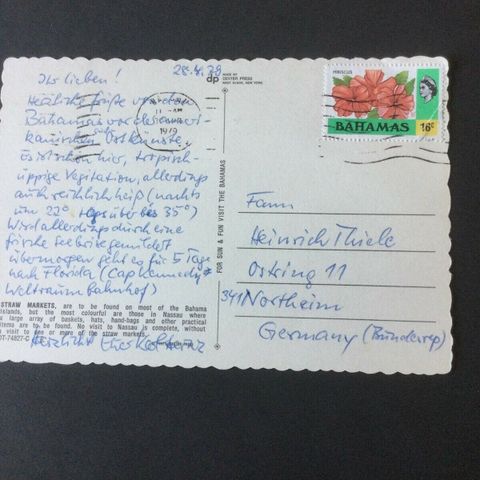 28.4.79
Ihr lieben!
Herzliche Grüße von den
Bahamas vor der ameri-
kanischen Ostküste
Es ist schön hier, tropisch-
üppige Vegitation, allerdings
auch reichlich heiß (nachts
um 22° tags über bis 35°)
Wird allerdings durch eine
frische Seebrise gemildert
übermorgen geht es für 5 Tage
nach Florida (Cap Kennedy
Weltraumbahnhof)
STRAW MARKETS, are to be found on most of the Bahama
Islands, but the most colourful are those in Nassau where
large array of baskets, hats, hand-bags and other practical
items are to be found. No visit to Nassau is complete, without
a visit to one or more of the straw markets.
DT-74827-C
Herzlichst
dp
MADE BY
DEXTER PRESS
WEST NYACK, NEW YORK
FOR SUN & FUN VISIT THE BAHAMAS
1979
AM
HIBISCUS
BAHAMAS 16c
Fam
Heinrich Thiele
Ostring 11
341 Northeim
Germany (Bundesrep)